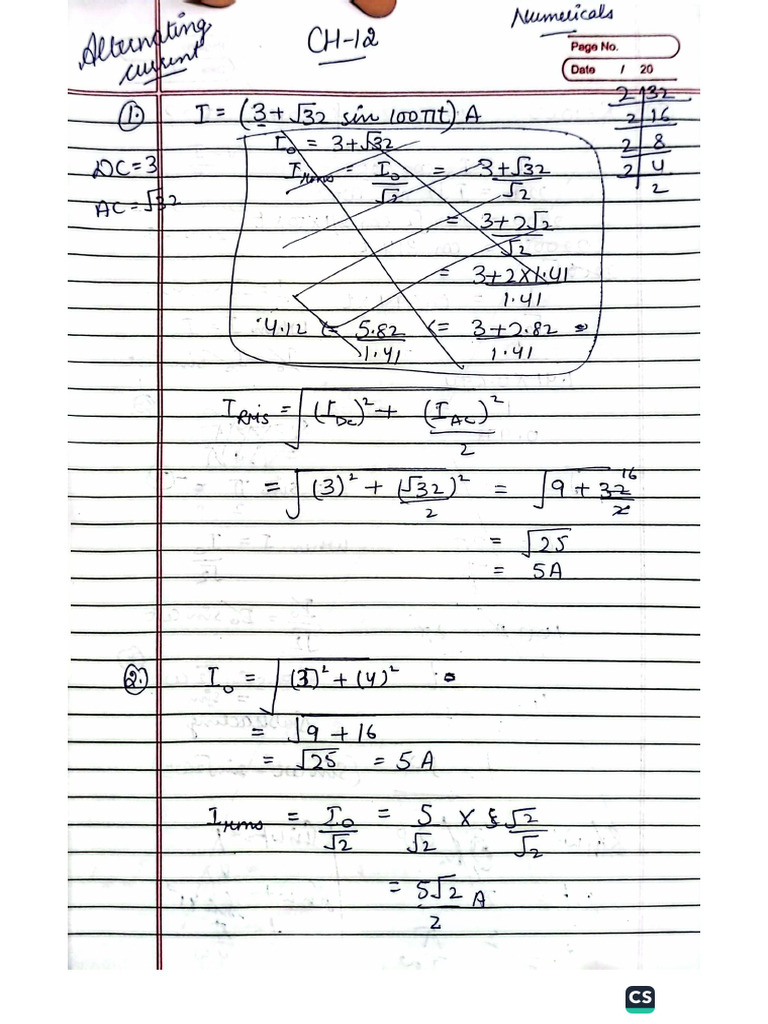 Alternating current
CH-12
Numericals
Page No.
Date / 20
① I = (3 + √32 sin 100πt) A
2 | 32
2 | 16
2 | 8
2 | 4
2
DC = 3
AC = √32
I₀ = 3+√32
Irms = I₀/√2 = 3+√32/√2
= 3+2√2/√2
= 3+2×1.41/1.41
4.12 (= 5.82/1.41 (= 3+2.82/1.41
IRMS = √((I_DC)² + (I_AC)²/2)
= √((3)² + (√32)²/2) = √(9 + 32/2) 16
= √25
= 5A
② I₀ = √((3)² + (4)²)
= √9 + 16
= √25 = 5 A
Irms = I₀/√2 = 5/√2 × √2/√2
= 5√2/2 A
CS